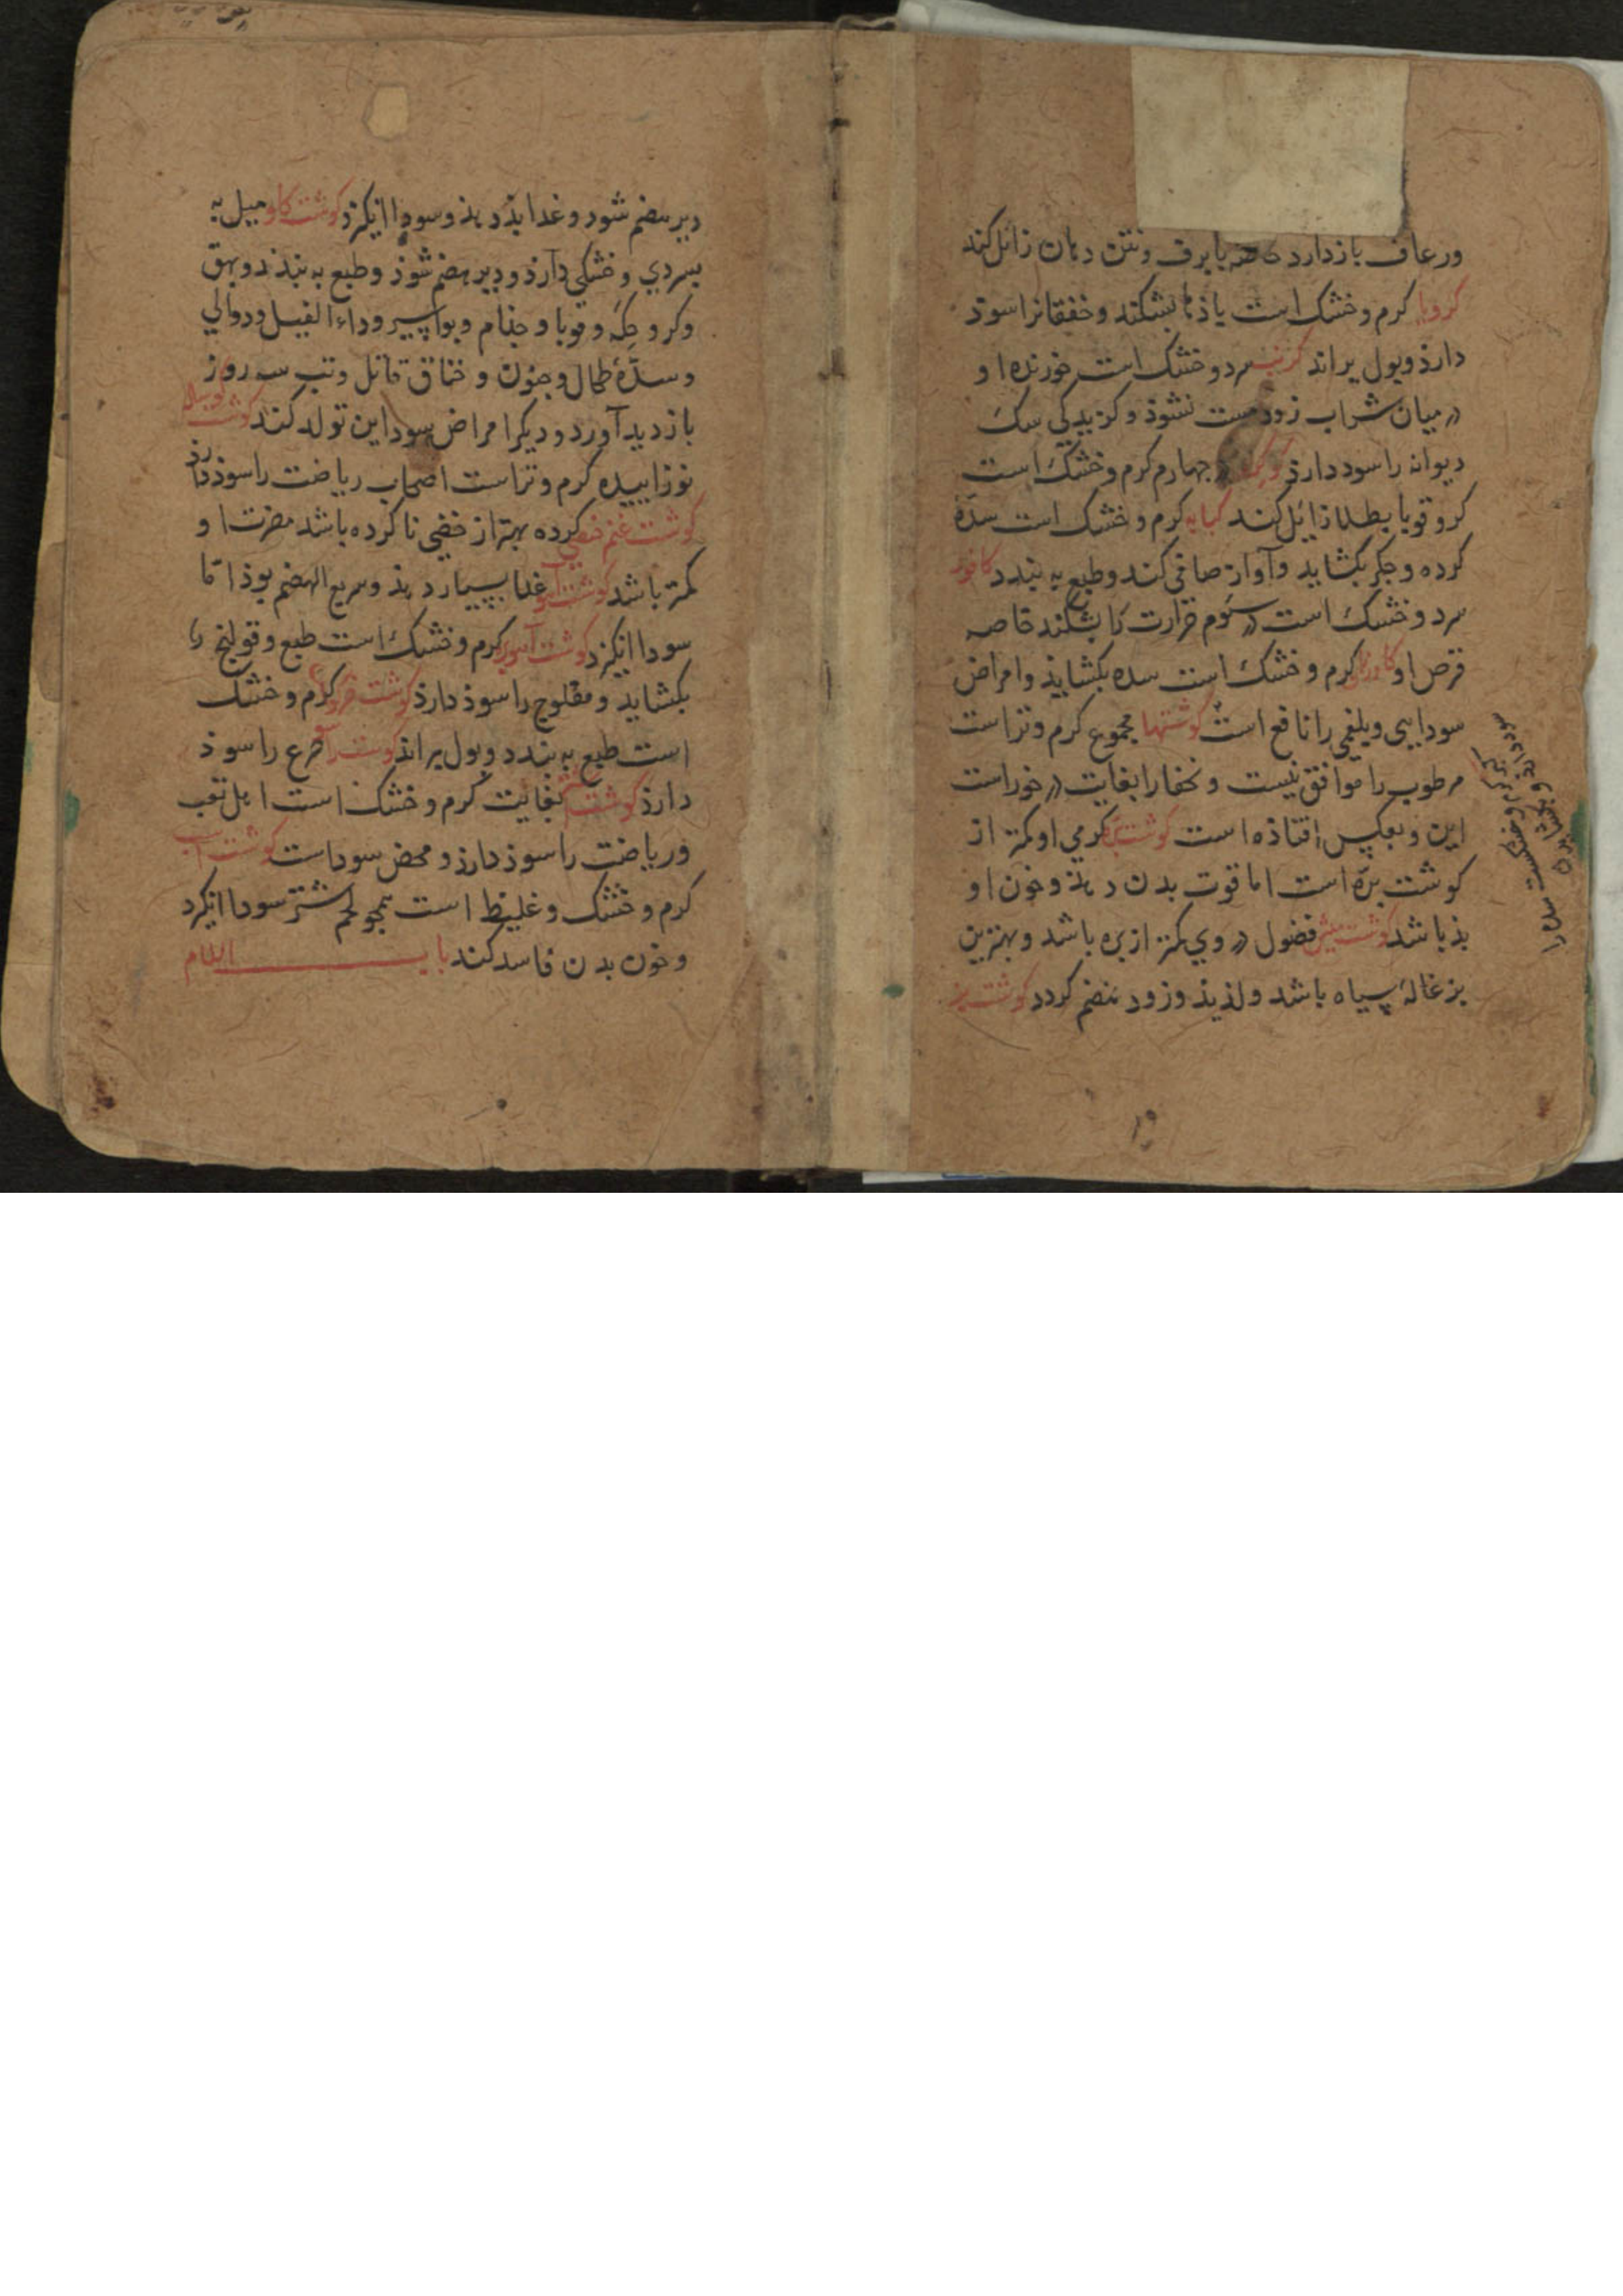 ورعاف باز دارد خاصه با برف ونتن دهان زائل کند
کرویا کرم وخشک است باذها بشکند وخفقانرا سوذ
دارذ وبول براند کرنب سرد وخشک است خورنده او
در میان شراب زود مست نشوذ وکزیدکی سک
دیوانه را سود دارذ در جهارم کرم وخشک است
کر وقوبا بطلا زائل کند کبابه کرم وخشک است سدّهٔ
کرده وجکر بکشاید وآواز صافی کند وطبع به بندد کافور
سرد وخشک است در سوم حرارت را بشکند خاصه
قرص او کرم وخشک است سده بکشایذ وامراض
سودایی وبلغمی را نافع است کوشتها مجموع کرم وتر است
مرطوب را موافق نیست ونحفا را بغایت در خور است
این وبعکس افتاذه است کوشت بره کرمی او کمتر از
کوشت بره است اما قوت بدن دهذ وخون او
بذ باشد کوشت میش فضول در وی کمتر از بره باشد وبهترین
بزغالهٔ سیاه باشد ولذیذ وزود هضم کردد کوشت بز
دیر هضم شود وغدا بذ دهذ وسودا انکیزد کوشت کاو میل به
سردی وخشکی دارذ ودیر هضم شوذ وطبع به بندد وبهق
وکر وحکّه وقوبا وجذام وبواسیر وداء الفیل ودوالی
وسدّهٔ طحال وجنون وخناق قاتل وتب سه روز
بازدید آورد ودیکر امراض سوداین تولد کند کوشت کوساله
نوزاییده کرم وتر است اصحاب ریاضت را سوذ دارذ
کوشت غنم خصی کرده بهتر از خصی ناکرده باشد مضرت او
کمتر باشد کوشت آهو غدا بسیار دهذ وسریع الهضم بوذ امّا
سودا انکیزد کوشت آهوبره کرم وخشک است طبع وقولنج را
بکشاید ومفلوج را سوذ دارذ کوشت کرم وخشک
است طبع به بندد وبول براند کوشت راسو صرع را سوذ
دارذ کوشت شتر بغایت کرم وخشک است اهل تعب
وریاضت را سوذ دارذ ومحض سودا است کوشت اسب
کرم وخشک وغلیظ است همجو لحم شتر سودا انکیزد
وخون بدن فاسد کند باب اللام